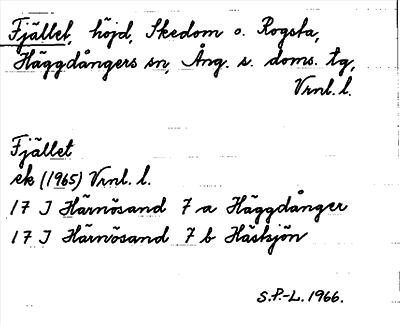 Fjället, höjd, Skedom o. Rogsta,
Häggdångers sn, Ång. s. doms. tg,
Vrnl. l.
Fjället
ek (1965) Vrnl. l.
17 J Härnösand 7 a Häggdånger
17 J Härnösand 7 b Häskjön
S.P.-L. 1966.